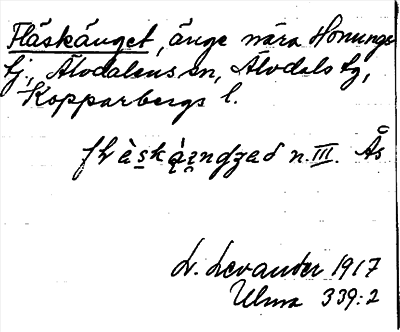 Fläskänget, änge nära Honungs
tj., Älvdalens sn, Älvdals tg,
Kopparbergs l.
n. III. Ås
L. Levander 1917
Ulma 339:2